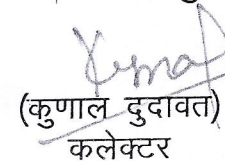 (कुणाल दुदावत)
कलेक्टर